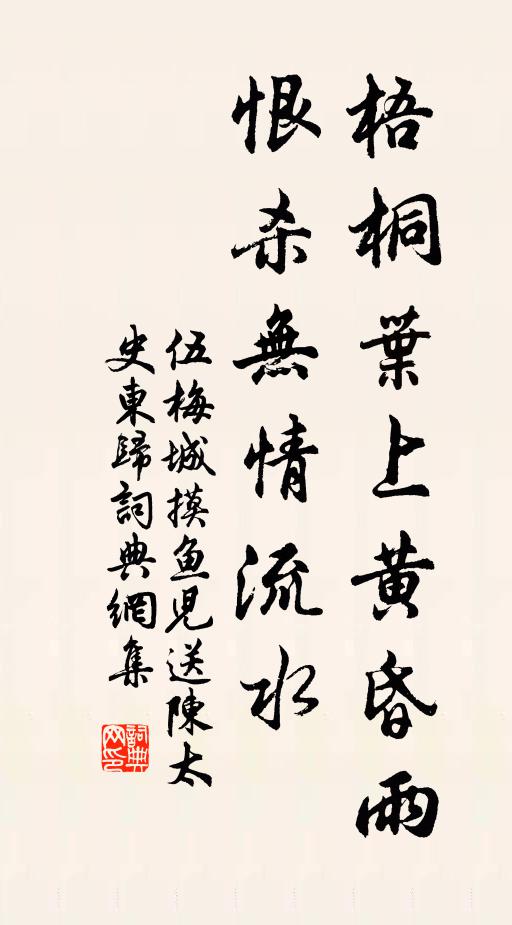 梧桐葉上黄昏雨
恨杀無情流水
伍梅城摸鱼児送陳太
史東歸詞典網集
詞典网印